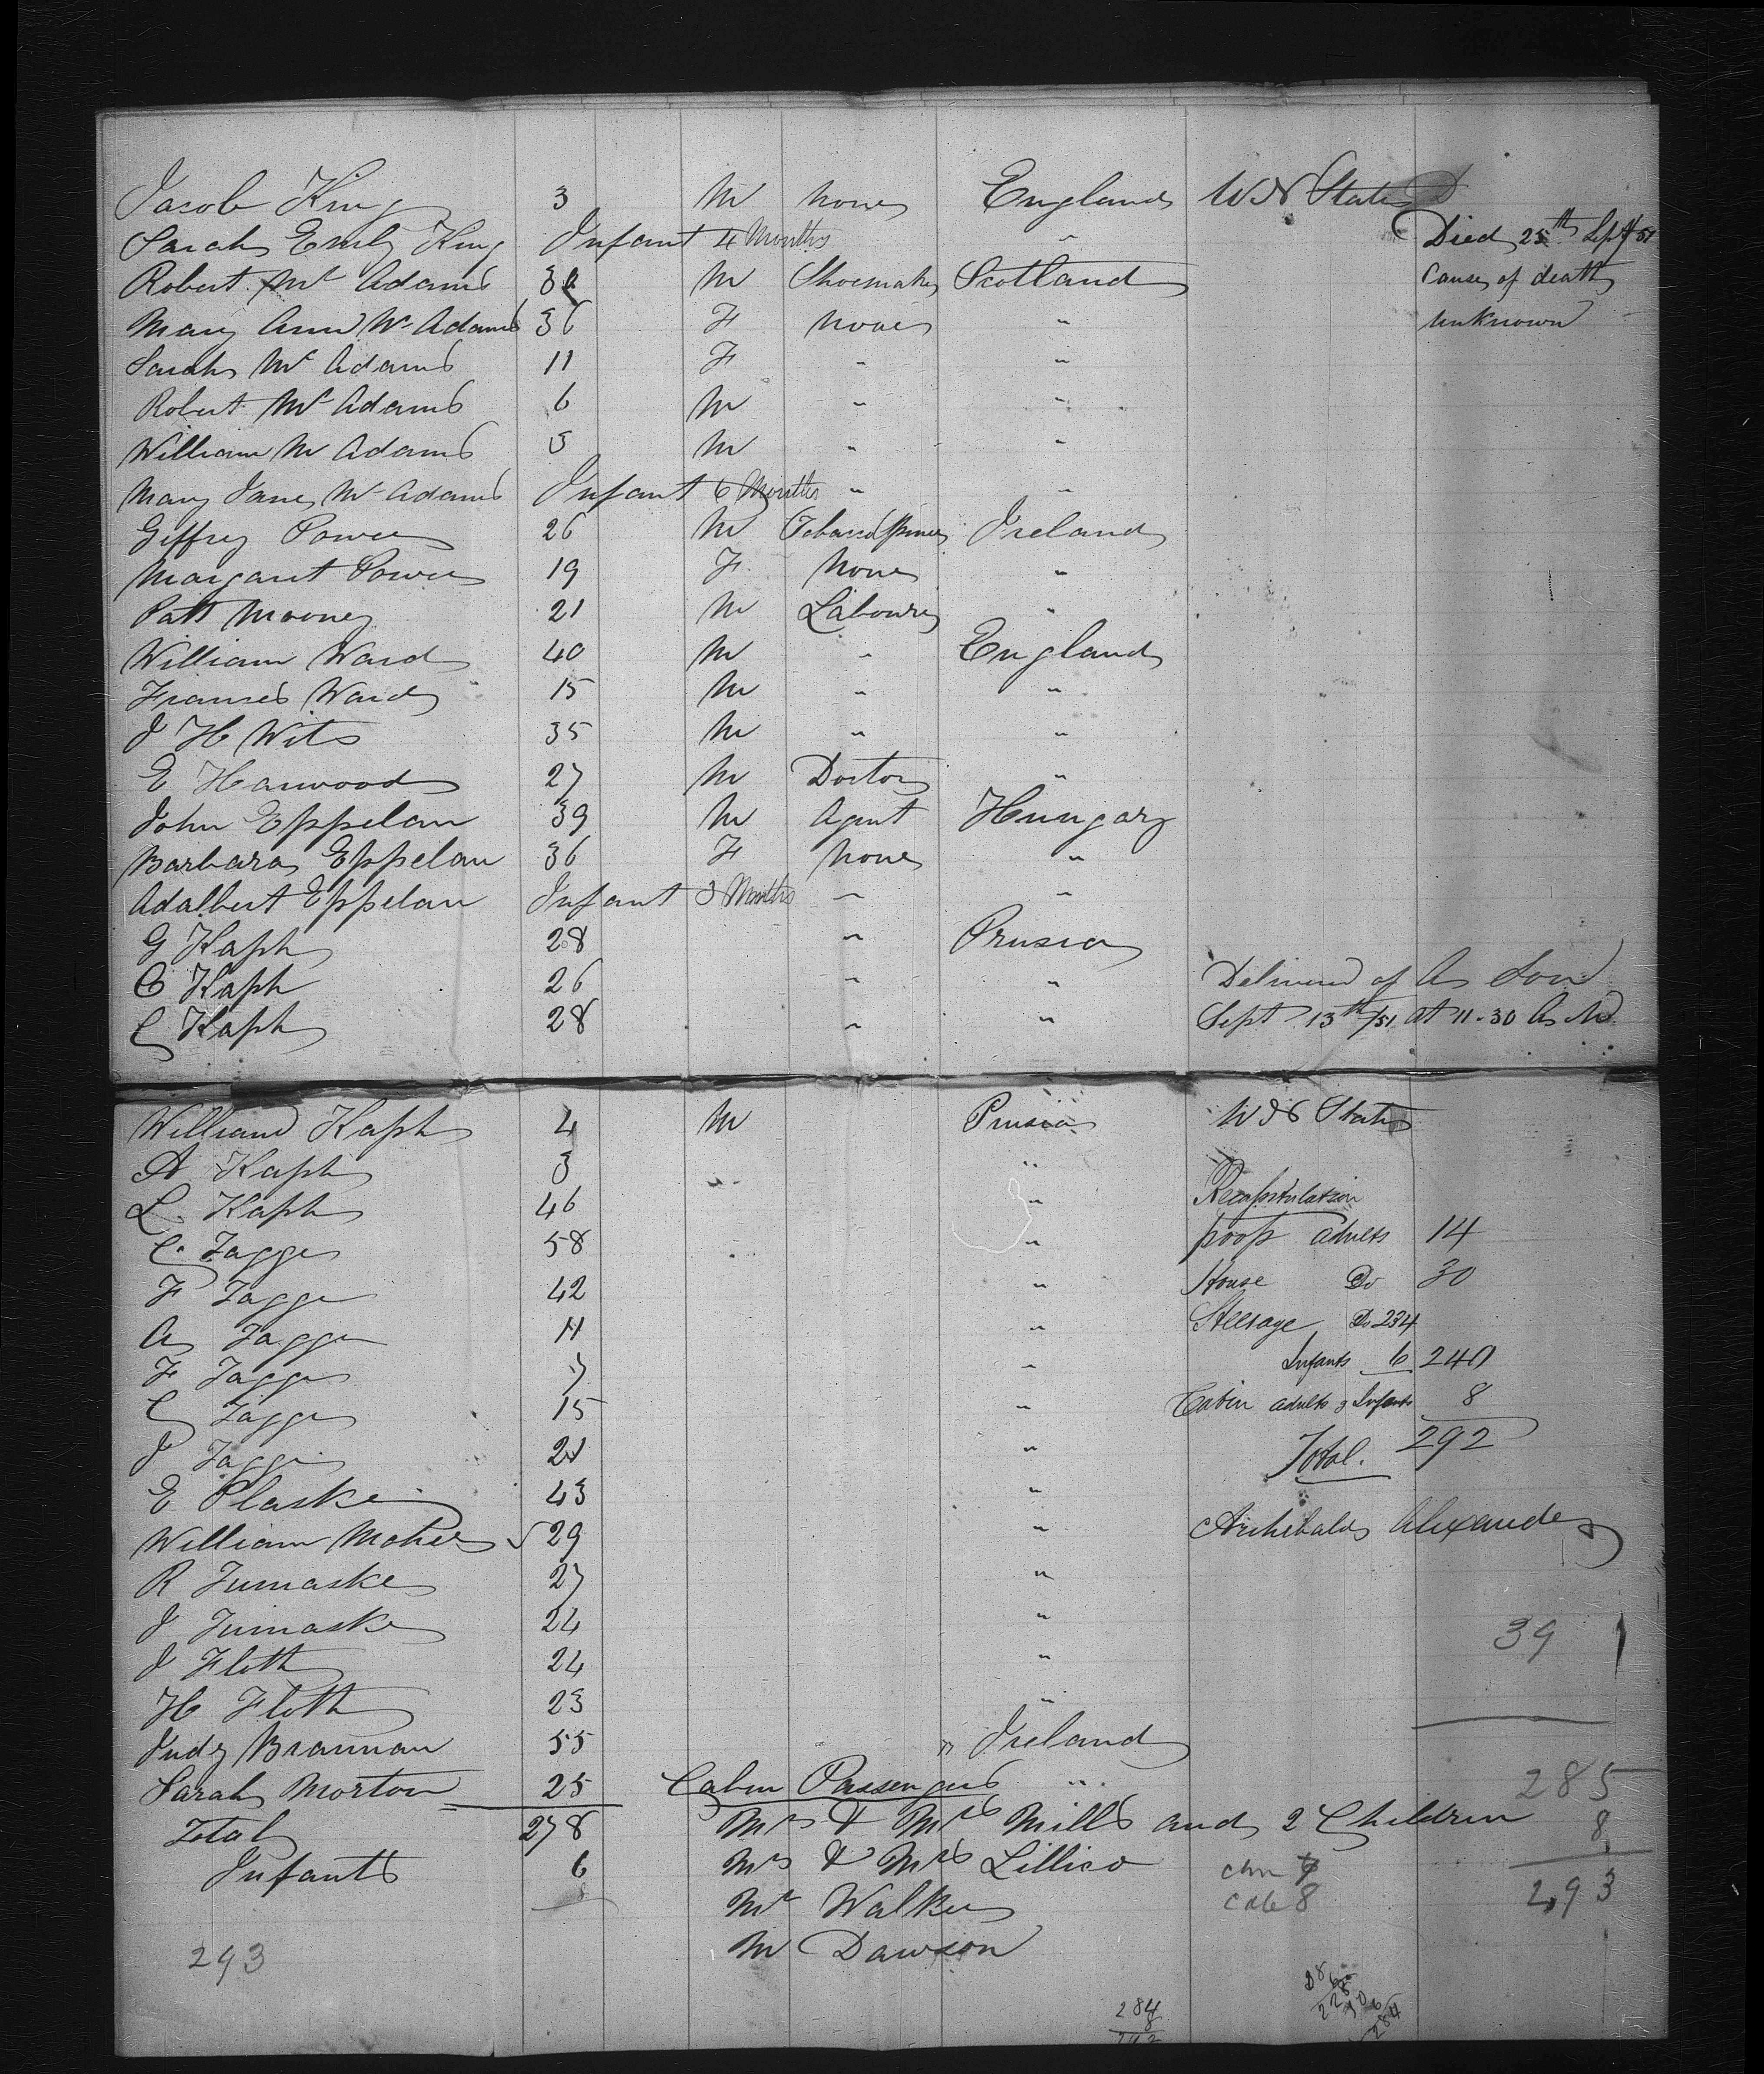 Jacob King 3 M None England U S States D
Sarah Emily King Infant 4 Months " Died 25th Sept 51
Robert Mc Adams M Shoemaker Scotland Cause of death
Mary Ann Mc Adams 36 F None " Unknown
Sarah Mc Adams 11 F " "
Robert Mc Adams 6 M " "
William Mc Adams 5 M " "
Mary Jane Mc Adams Infant 6 Months " "
Geffrey Power 26 M Ireland
Margaret Power 19 F None "
Patt Mooney 21 M Labourer "
William Ward 40 M " England
Franses Ward 15 M " "
J H Wits 35 M " "
E Harwood 27 M Doctor "
John Eppelan 39 M Agent Hungary
Barbara Eppelan 36 F None "
Adalbert Eppelan Infant 3 Months " "
G Kaph 28 " Prusia
C Kaph 26 " " Delivered of A Son
C Kaph 28 " " Sept 13th/51 at 11-30 A M
William Kaph 4 M Prusia U S States
A Kaph 3 "
L Kaph 46 " Recapitulation
C. Jagge 58 " poop adults 14
F Jagge 42 " House Do 30
A Jagge 11 " Steerage Do 234
F Jagge 7 " Infants 6 240
C Jagge 15 " Cabin adults & Infants 8
J Jagge 21 " Total. 292
E Plaske 43 "
William Moher 29 " Archibald Alexander
R Jumaske 27 "
J Jumaske 24 " 39
J Floth 24 "
H Floth 23 "
Judy Brannan 55 " Ireland
Sarah Morton 25 Cabin Passengers " 285
Total 278 Mr & Mrs Mills and 2 Children 8
Infants 6 Mr & Mrs Lillico 293
Mr Walker 8
293 M Dawson
284
8